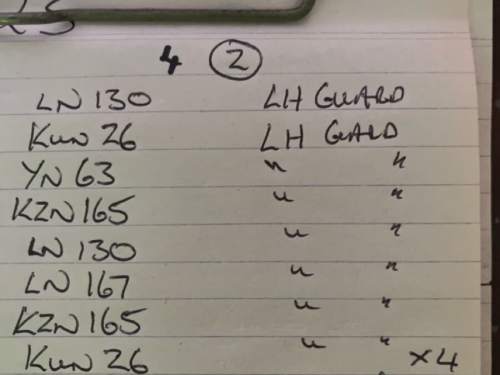 4 2
LN 130 LH GUARD
KUN 26 LH GUARD
YN 63 " "
KZN 165 " "
LN 130 " "
LN 167 " "
KZN 165 " "
KUN 26 " " x4